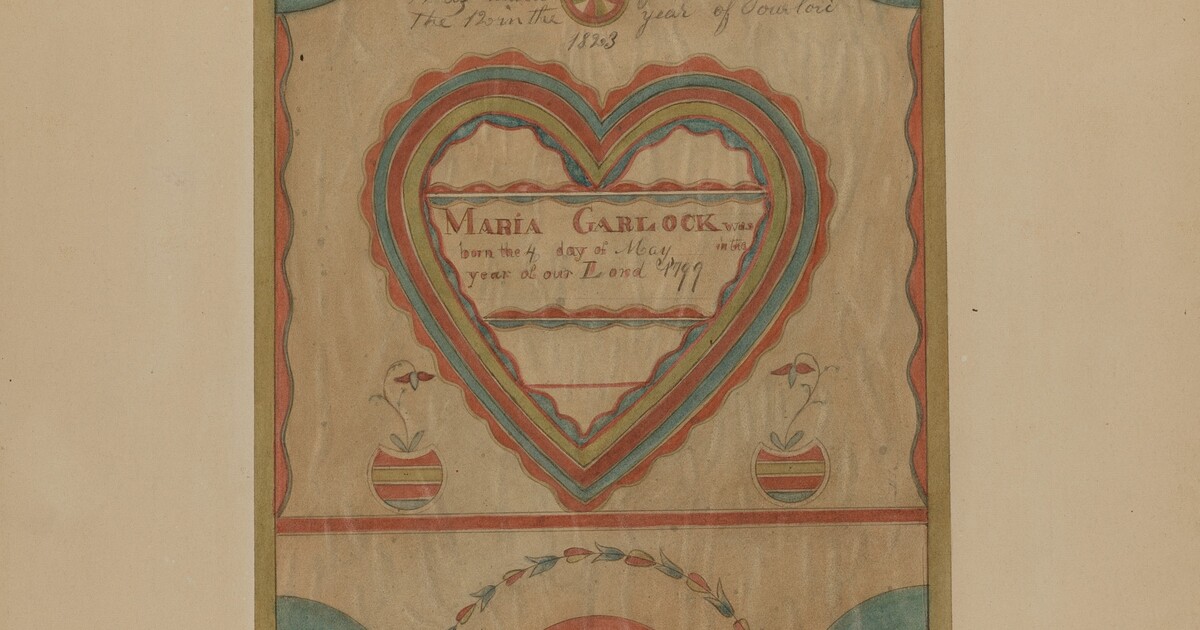 The 12 in the year of Our Lord
1823
MARIA GARLOCK was
born the 4 day of May in the
year of our Lord 1799